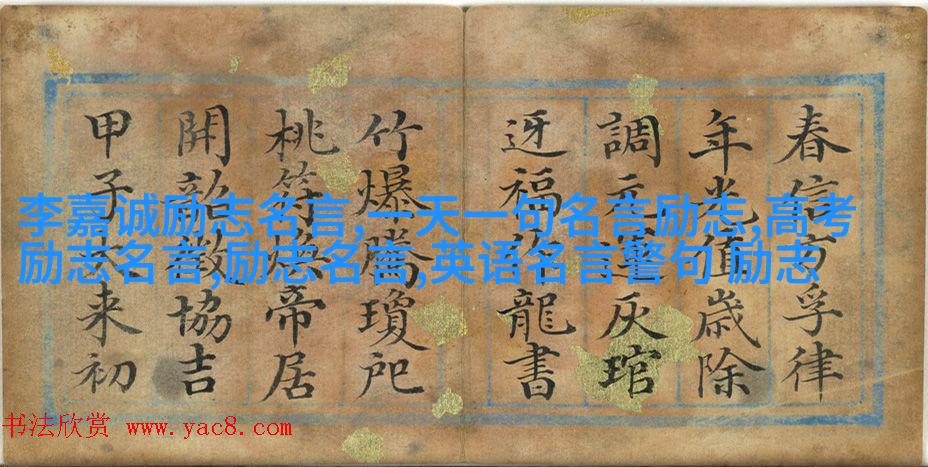 春信百孚律
年光值歲除
調元運灰琯
迓福龍書
竹爆騰瓊戺
桃符煥帝居
開韶數協吉
甲子來初
李嘉诚励志名言,一天一句名言励志,高考
励志名言,励志名言,英语名言警句 励志
书法欣赏 www.yac8.com